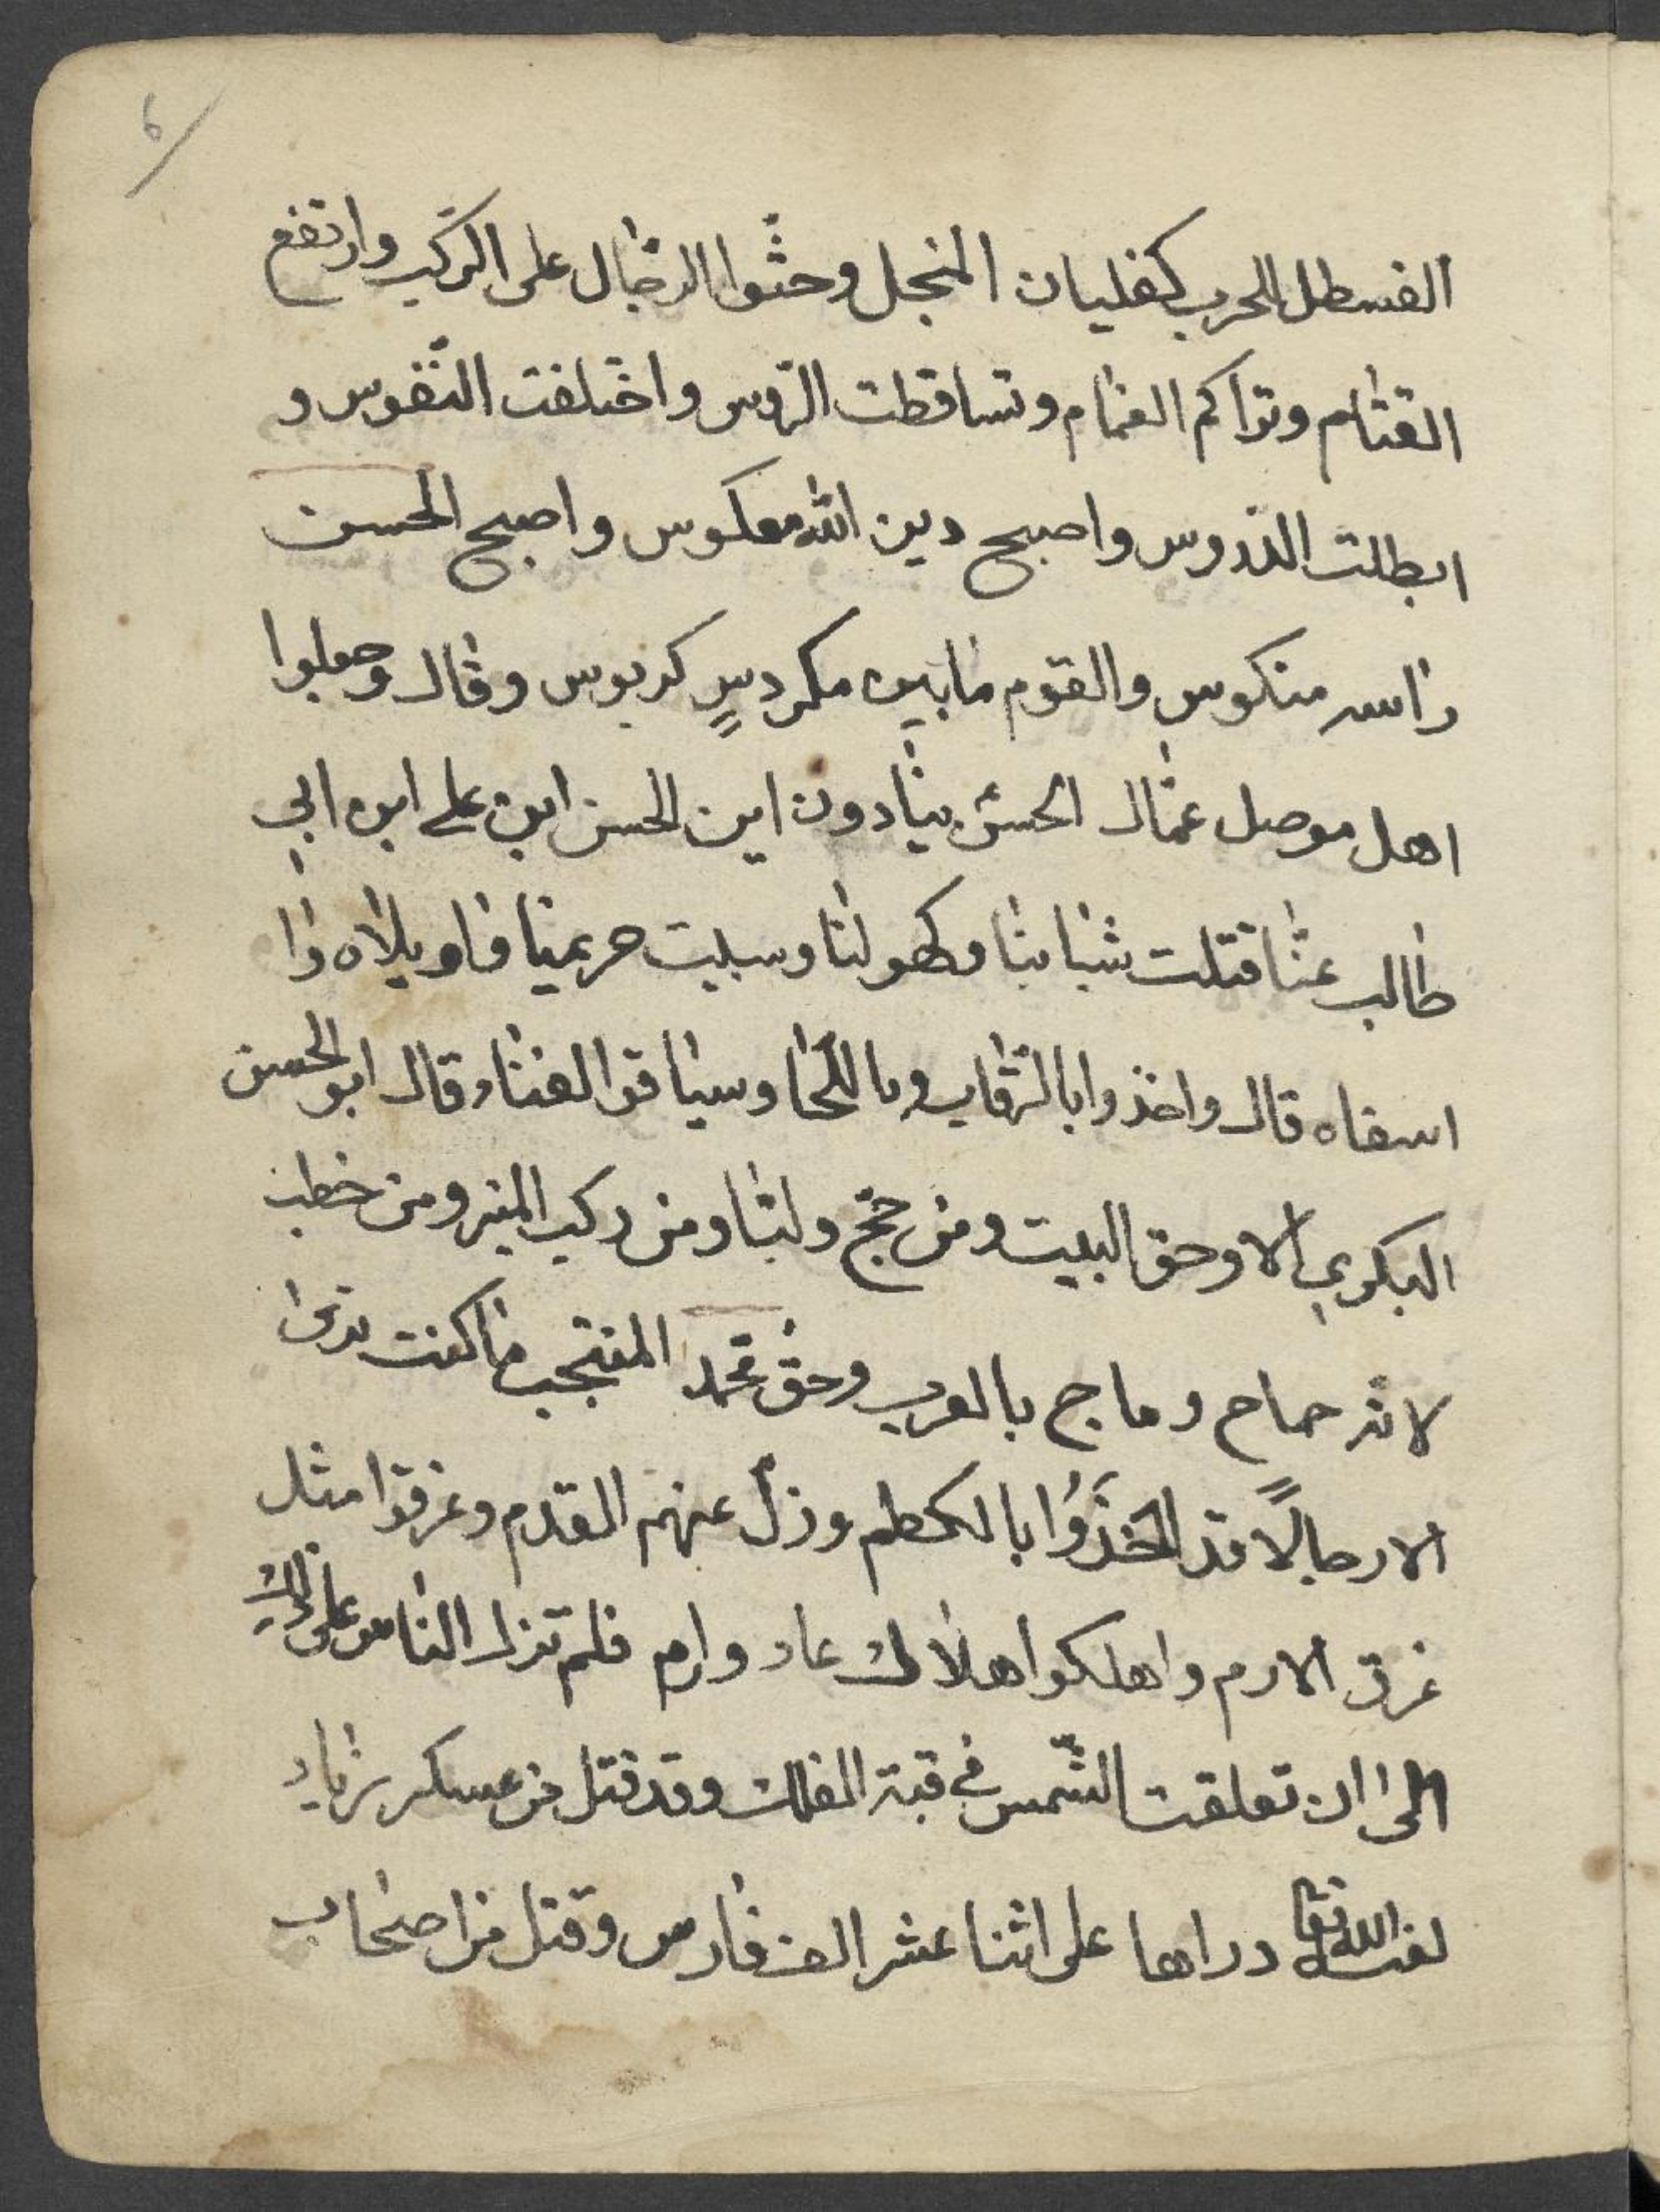 6
القسطل الحرب كغليان المنجل وحثوا الرجال على الركب وارتفع
القتام وتراكم الغمام وتساقطت الروس واختلفت النفوس و
ابطلت الدروس واصبح دين الله معكوس واصبح الحسن
راسه منكوس والقوم ما بين مكردسٍ كربوس وقال وجعلوا
اهل موصل عمال الحسن ينادون اين الحسن ابن علي ابن ابي
طالب عنا قتلت شبابنا وكهولنا وسبيت حريمنا فاويلاه وا
اسفاه قال واخذوا بالرقاب وباللحا وسياقوا الفنا وقال ابو الحسن
البكري الا وحق البيت ومن حج ولبا ومن ركب المنبر ومن خطب
وماج بالعرب وحق محمد المنتجب ما كنت ترى
الا رجالًا قد اخذوا بالكظم وزل عنهم القدم وغرقوا مثل
غرق الارم واهلكوا اهلاك عاد وارم فلم تزل الناس على ذلك
الى ان تعلقت الشمس في قبة الفلك وقد قتل من عسكر زياد
لعنه الله تعا دراها على اثنا عشر الف فارس وقتل من اصحاب